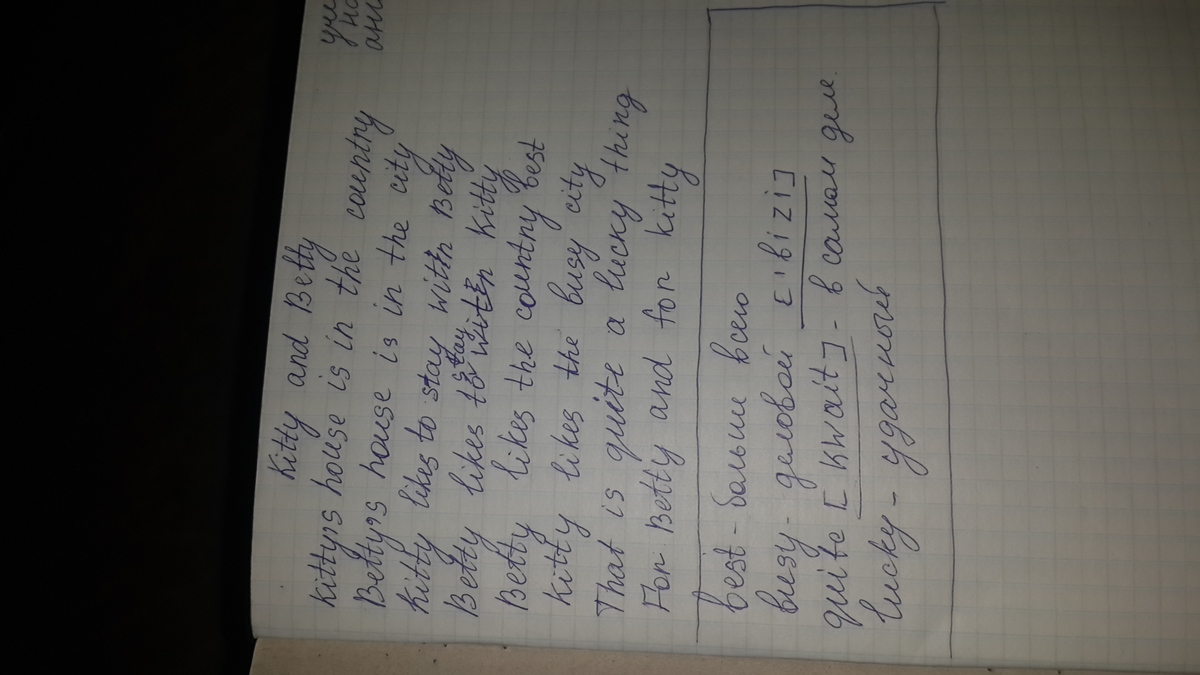 Kitty and Betty
Kitty's house is in the country
Betty's house is in the city
Kitty likes to stay with Betty
Betty likes to stay with Kitty
Betty likes the country best
Kitty likes the busy city
That is quite a lucky thing
For Betty and for kitty
best - больше всего
busy - деловой ['bizi]
quite [kwait] - в самом деле.
lucky - удачный